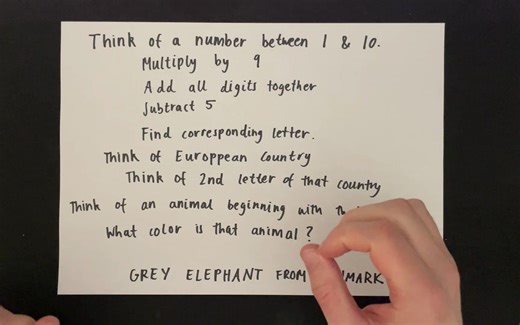 Think of a number between 1 & 10.
Multiply by 9
Add all digits together
Subtract 5
Find corresponding letter.
Think of Europpean Country
Think of 2nd letter of that country
Think of an animal beginning with
What color is that animal?
GREY ELEPHANT FROM